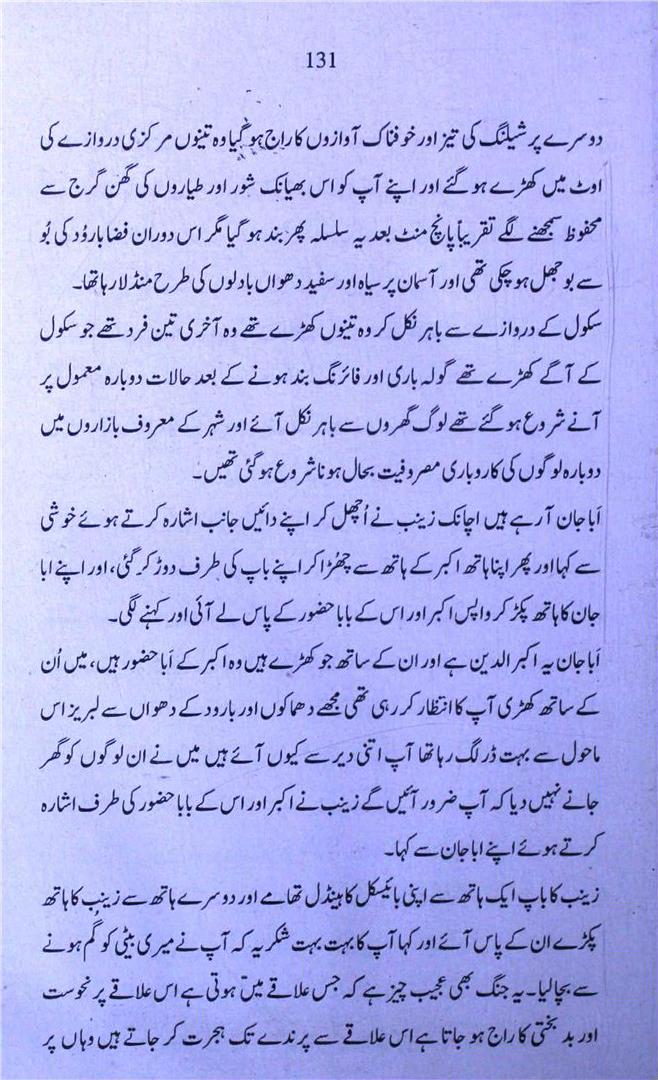 131
دوسرے پر شیلنگ کی تیز اور خوفناک آوازوں کا راج ہو گیا وہ تینوں مرکزی دروازے کی
اوٹ میں کھڑے ہو گئے اور اپنے آپ کو اس بھیانک شور اور طیاروں کی گھن گرج سے
محفوظ سمجھنے لگے تقریباً پانچ منٹ بعد یہ سلسلہ پھر بند ہو گیا مگر اس دوران فضا بارُود کی بُو
سے بوجھل ہو چکی تھی اور آسمان پر سیاہ اور سفید دھواں بادلوں کی طرح منڈلا رہا تھا۔
سکول کے دروازے سے باہر نکل کر وہ تینوں کھڑے تھے وہ آخری تین فرد تھے جو سکول
کے آگے کھڑے تھے گولہ باری اور فائرنگ بند ہونے کے بعد حالات دوبارہ معمول پر
آنے شروع ہو گئے تھے لوگ گھروں سے باہر نکل آئے اور شہر کے معروف بازاروں میں
دوبارہ لوگوں کی کاروباری مصروفیت بحال ہونا شروع ہو گئی تھیں۔
اَبا جان آ رہے ہیں اچانک زینب نے اُچھل کر اپنے دائیں جانب اشارہ کرتے ہوئے خوشی
سے کہا اور پھر اپنا ہاتھ اکبر کے ہاتھ سے چھُڑا کر اپنے باپ کی طرف دوڑ کر گئی، اور اپنے ابا
جان کا ہاتھ پکڑ کر واپس اکبر اور اس کے بابا حضور کے پاس لے آئی اور کہنے لگی۔
اَبا جان یہ اکبر الدین ہے اور ان کے ساتھ جو کھڑے ہیں وہ اکبر کے اَبا حضور ہیں، میں اُن
کے ساتھ کھڑی آپ کا انتظار کر رہی تھی مجھے دھماکوں اور بارود کے دھواں سے لبریز اس
ماحول سے بہت ڈر لگ رہا تھا آپ اتنی دیر سے کیوں آئے ہیں میں نے ان لوگوں کو گھر
جانے نہیں دیا کہ آپ ضرور آئیں گے زینب نے اکبر اور اس کے بابا حضور کی طرف اشارہ
کرتے ہوئے اپنے ابا جان سے کہا۔
زینب کا باپ ایک ہاتھ سے اپنی بائیسکل کا ہینڈل تھامے اور دوسرے ہاتھ سے زینب کا ہاتھ
پکڑے ان کے پاس آئے اور کہا آپ کا بہت بہت شکریہ کہ آپ نے میری بیٹی کو گم ہونے
سے بچا لیا۔ یہ جنگ بھی عجیب چیز ہے کہ جس علاقے میں ہوتی ہے اس علاقے پر نحوست
اور بدبختی کا راج ہو جاتا ہے اس علاقے سے پرندے تک ہجرت کر جاتے ہیں وہاں پر